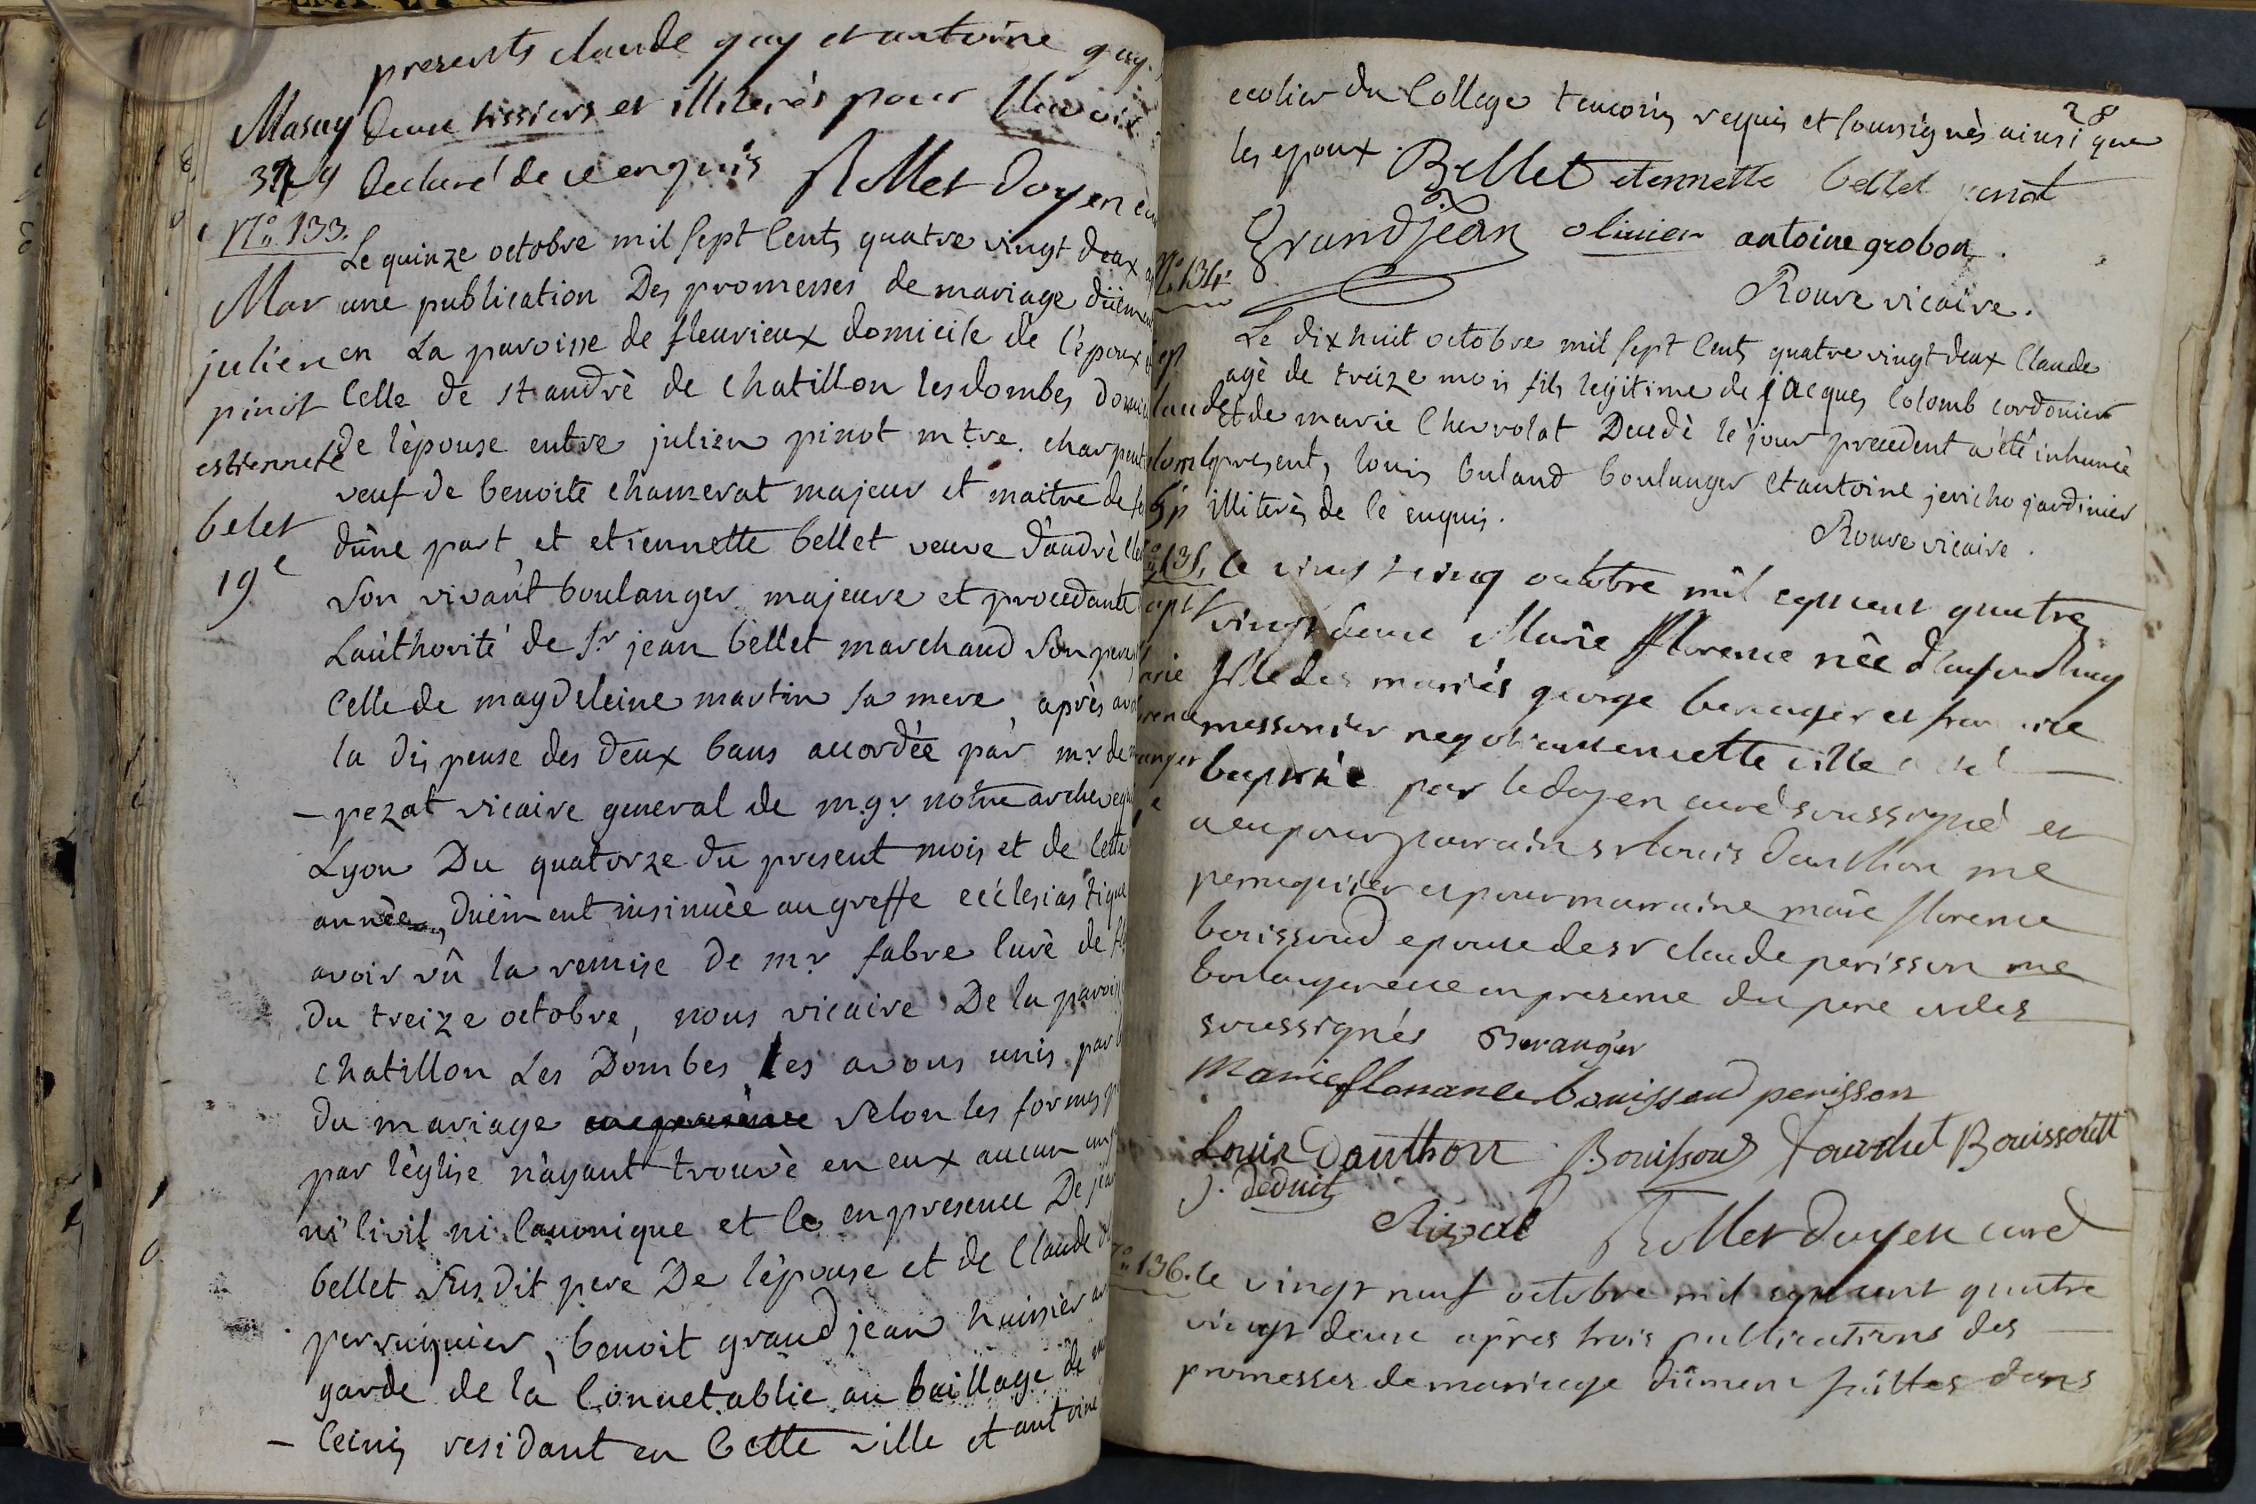 presents claude guy et antoine guy
Masuy deux tissiers et illiterés pour
Declaré de ce enquis Rollet doyen
No. 133.
Le quinze octobre mil sept cents quatre vingt deux
Mar une publication Des promesses de mariage düement
julien en La paroisse de fleurieux domicile de l'époux
pinot celle de st andrè de chatillon les dombes
estiennete de l'èpouse entre julien pinot mtre. charpent
veuf de benoite chamerat majeur et maitre de
belet d'une part et etiennette bellet veuve d'andrè
19e son vivant boulanger majeure et procedante
Lauthorité de Sr jean bellet marchand son pere
celle de magdeleine martin sa mere après
la dispense des deux bans accordée par mr de
- pezat vicaire general de mgr notre archeveque
Lyon Du quatorze du present mois et de cette
annèe, düement insinuèe au greffe ecclesiastique
avoir vû la remise de mr fabre curè de
Du treize octobre, nous vicaire De la paroisse
chatillon Les Dombes les avons unis par
Du mariage selon les formes
par l'èglise n'ayant trouvè en eux aucun
ni civil ni canonique et ce en presence De jean
bellet susdit pere De l'èpouse et de claude
perruquier, benoit grandjean huissier
garde de la connetablie au bailliage de
- ceints residant en cette ville et antoine
28
ecolier du college temoins requis et soussignès ainsi que
les epoux. Bellet etennette bellet pinot
Grandjean olivier antoine grobon.
Rouve vicaire.
No. 134.
Le dix huit octobre mil sept cents quatre vingt deux Claude
agè de treize mois fils legitime de jacques colomb cordonier
et de marie Chevrolat Decedè le jour precedent a èté inhumè
presents, louis buland boulanger et antoine jericho jardinier
illiterès de ce enquis.
Rouve vicaire.
135. le vingt cinq octobre mil sept cent quatre
vingt deux Marie florence née d'aujourd'huy
fille des mariés george beranger et
messonier negotiant en cette ville
baptisée par le doyen curé soussigné et
a eu pour parrain sr louis dauthon me
perruquier et pour marraine marie florence
bouissoud epouse de sr claude perisson me
boulanger en presence du pere et des
soussignés Beranger
Marie florance bouissoud perisson
Louis Dauthon Bouissoud Bouissoud
Rollet doyen curé
No. 136. le vingt neuf octobre mil sept cent quatre
vingt deux après trois publications des
promesses de mariage düment faittes dans